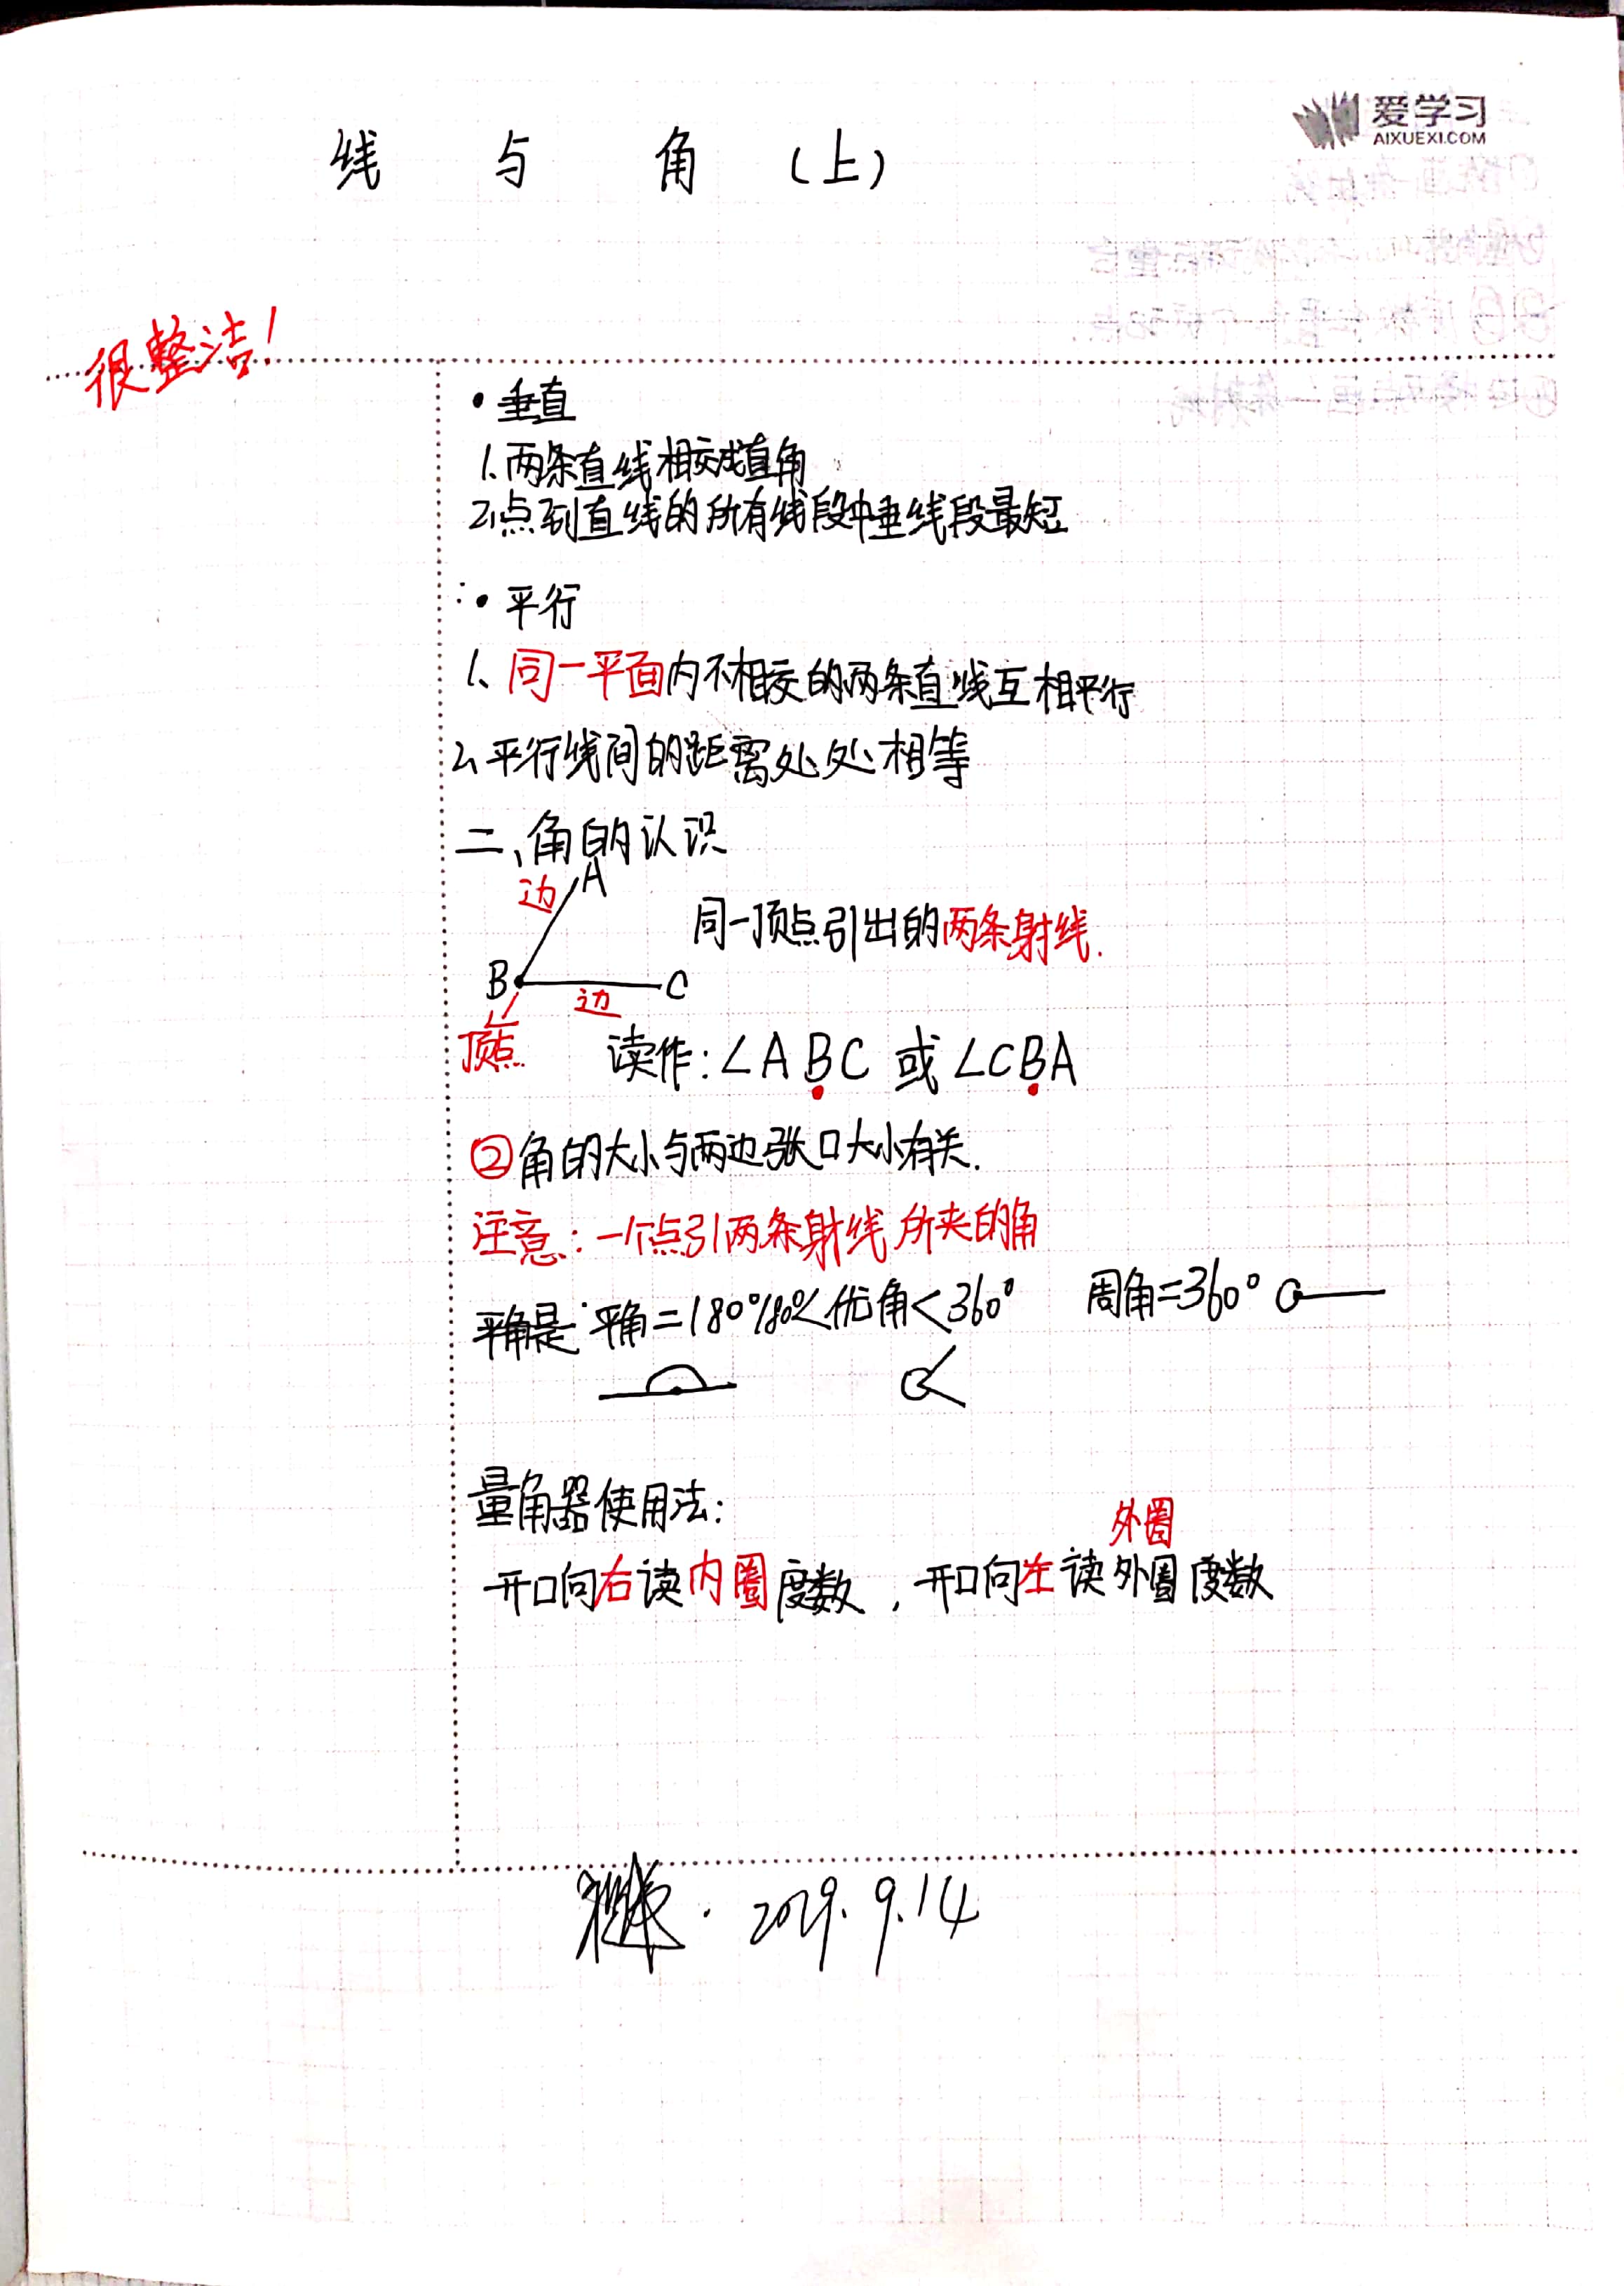 爱学习
AIXUEXI.COM
线 与 角 (上)
很整洁!
• 垂直
1、两条直线相交成直角
2、点到直线的所有线段中垂线段最短
• 平行
1、同一平面内不相交的两条直线互相平行
2、平行线间的距离处处相等
二、角的认识
边 A
同一顶点引出的两条射线.
B 边 C
顶点 读作:∠ABC 或 ∠CBA
②角的大小与两边张口大小有关.
注意:一个点引两条射线所夹的角
平角是 平角=180° 180°<优角<360° 周角=360°
量角器使用法:
外圈
开口向右读内圈度数,开口向左读外圈度数
2019.9.14